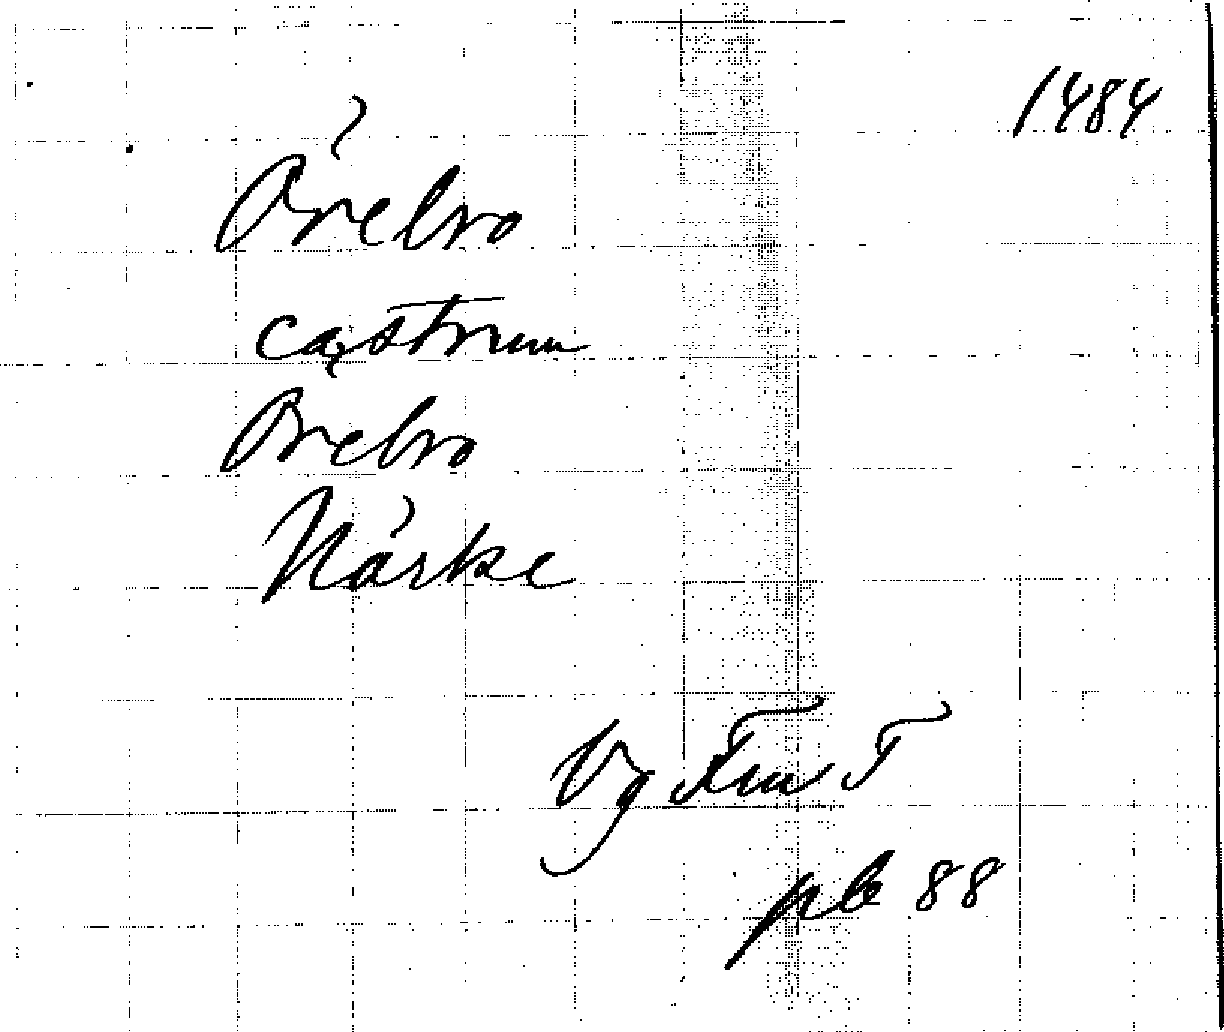 1484
Örebro
castrum
Örebro
Närke
Vg Fru T
plb 88